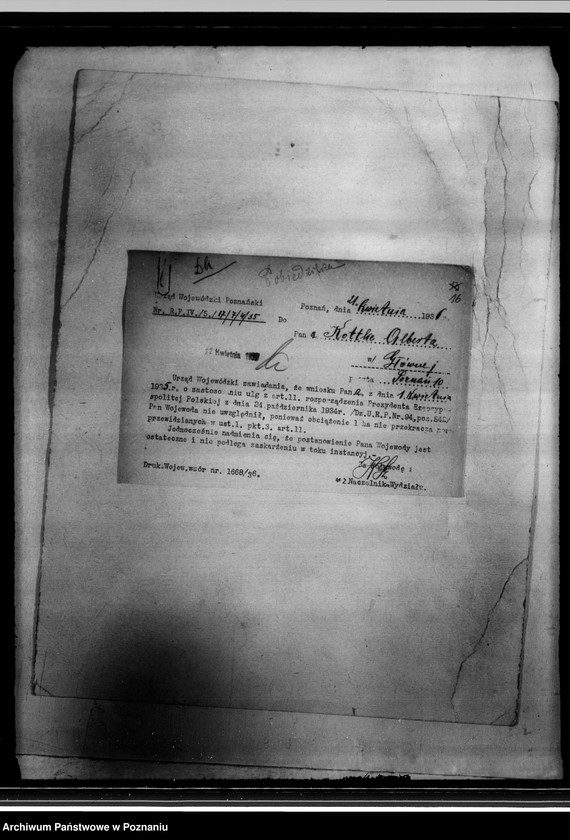 Pobiedziska
16
Urząd Wojewódzki Poznański
Nr. R.F.IV./5./
Poznań, dnia 21. kwietnia 1936.
Do
Pana Kottke Alberta
w/ Głównej
poczta Poznań 10
Kwietnia
Urząd Wojewódzki zawiadamia, że wniosku Pana, z dnia 1. kwietnia
1935 r. o zastosowaniu ulg z art.11. rozporządzenia Prezydenta Rzeczypo-
spolitej Polskiej z dnia 24 października 1934r. /Dz.U.R.P.Nr.94, poz.
Pan Wojewoda nie uwzględnił, ponieważ obciążenie 1 ha nie przekracza
przewidzianych w ust.1, pkt.3, art.11.
Jednocześnie nadmienia się, że postanowienie Pana Wojewody jest
ostateczne i nie podlega zaskarżeniu w toku instancyj.-
Za Wojewodę :
Druk.Wojew.wzór nr. 1668/36.
Naczelnik Wydziału.
Archiwum Państwowe w Poznaniu